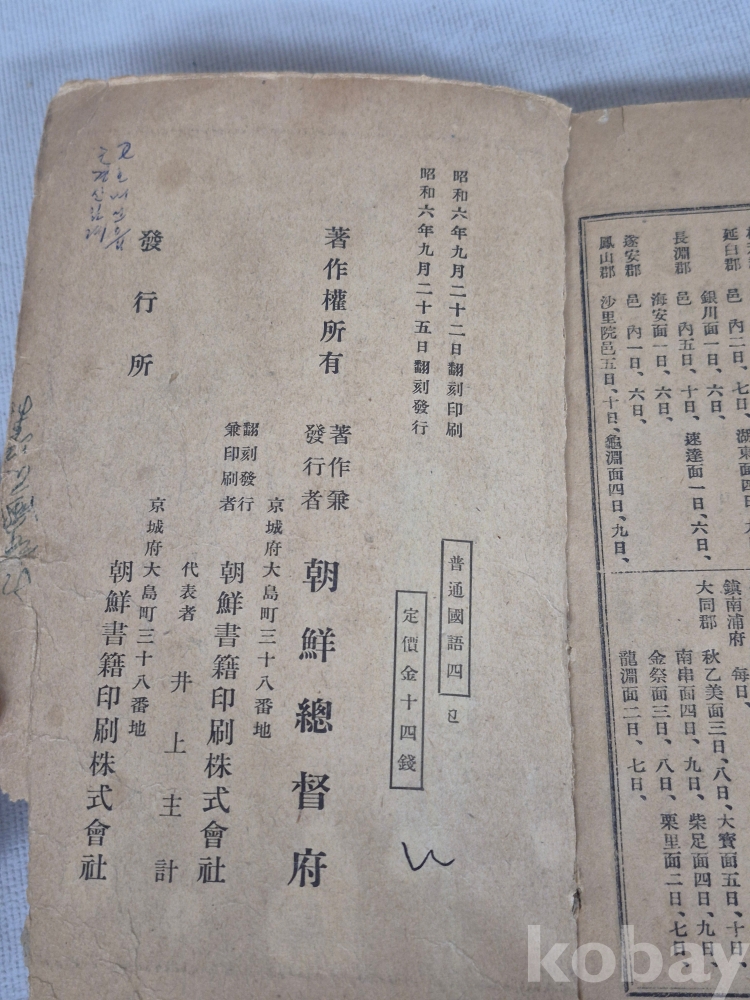 昭和六年九月二十二日翻刻印刷
昭和六年九月二十五日翻刻發行
普通國語四
定價金十四錢
著作權所有
著作兼
發行者
朝鮮總督府
京城府大島町三十八番地
翻刻發行
兼印刷者
朝鮮書籍印刷株式會社
代表者 井上主計
京城府大島町三十八番地
發行所
朝鮮書籍印刷株式會社
延白郡 邑內二日、七日、
銀川面一日、六日、
長淵郡 邑內五日、十日、
速達面一日、六日、
海安面一日、六日、
遂安郡 邑內一日、六日、
鳳山郡 沙里院邑五日、十日、龜淵面四日、九日、
鎭南浦府 每日、
大同郡
秋乙美面三日、八日、大寳面五日、十日、
南串面四日、九日、柴足面四日、九日、
金祭面三日、八日、栗里面二日、七日、
龍淵面二日、七日、
kobay